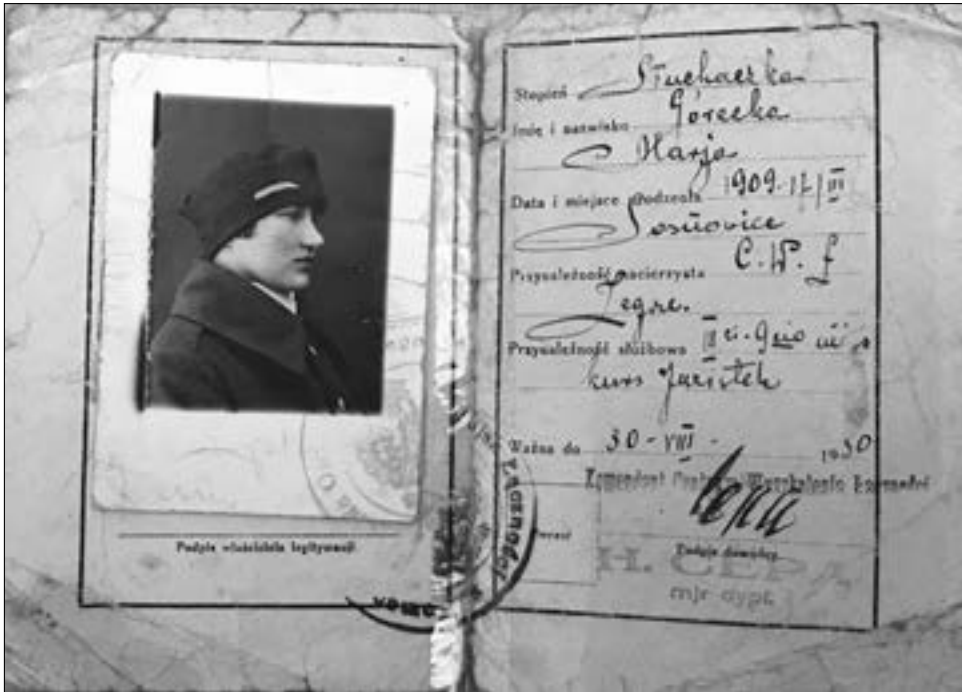 Podpis właściciela legitymacji
Stopień Słuchaczka
Imię i nazwisko Górecka
Marja
Data i miejsce urodzenia 1909.17/III
Sosnowice
Przynależność macierzysta C.W.Ł
Zegrze.
Przynależność służbowa
kurs Juzistek
Ważna do 30-VIII- 1930
Komendant Centrum Wyszkolenia Łączności
Cepa
Podpis dowódcy
H. CEPA
mjr dypl.
Łączności